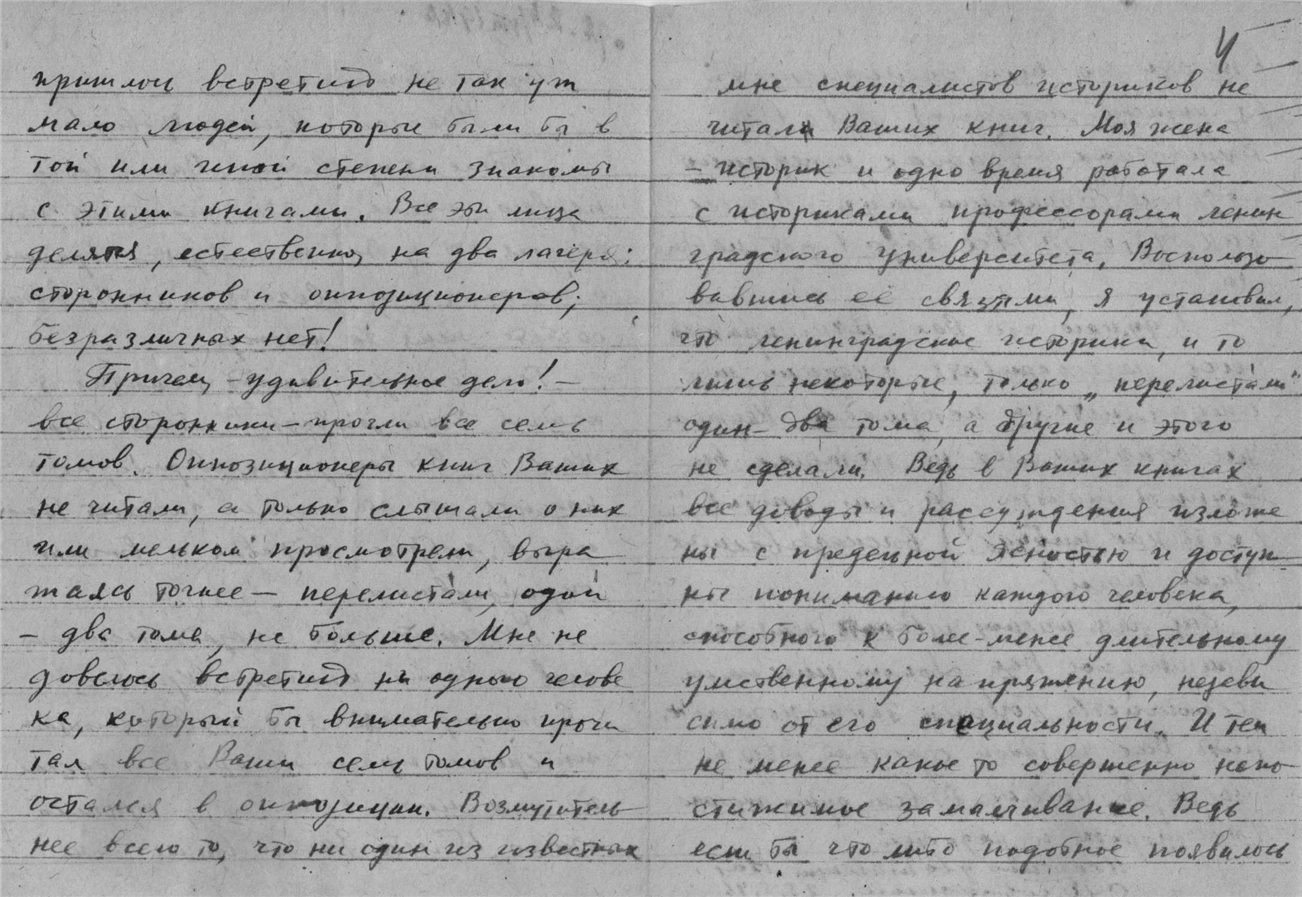 пришлось встретить не так уж
мало людей, которые были бы в
той или иной степени знакомы
с этими книгами. Все эти лица
делятся, естественно, на два лагеря:
сторонников и оппозиционеров;
безразличных нет!
Причем, – удивительное дело! –
все сторонники – прочли все семь
томов. Оппозиционеры книг Ваших
не читали, а только слышали о них
или мельком просмотрели, выра
жаясь точнее – перелистали, один
– два тома, не больше. Мне не
довелось встретить ни одного челове
ка, который бы внимательно прочи
тал все Ваши семь томов и
остался в оппозиции. Возмутитель
нее всего то, что ни один из известных
4
мне специалистов историков не
читали Ваших книг. Моя жена
– историк и одно время работала
с историками профессорами ленин
градского университета. Воспользо
вавшись её связями, я установил,
что ленинградские историки, и то
лишь некоторые, только „перелистали"
один – два тома, а другие и этого
не сделали. Ведь в Ваших книгах
все доводы и рассуждения изложе
ны с предельной ясностью и доступ
ны пониманию каждого человека,
способного к более-менее длительному
умственному напряжению, незави
симо от его специальности. И тем
не менее какое то совершенно непо
стижимое замалчивание. Ведь
если бы что либо подобное появилось